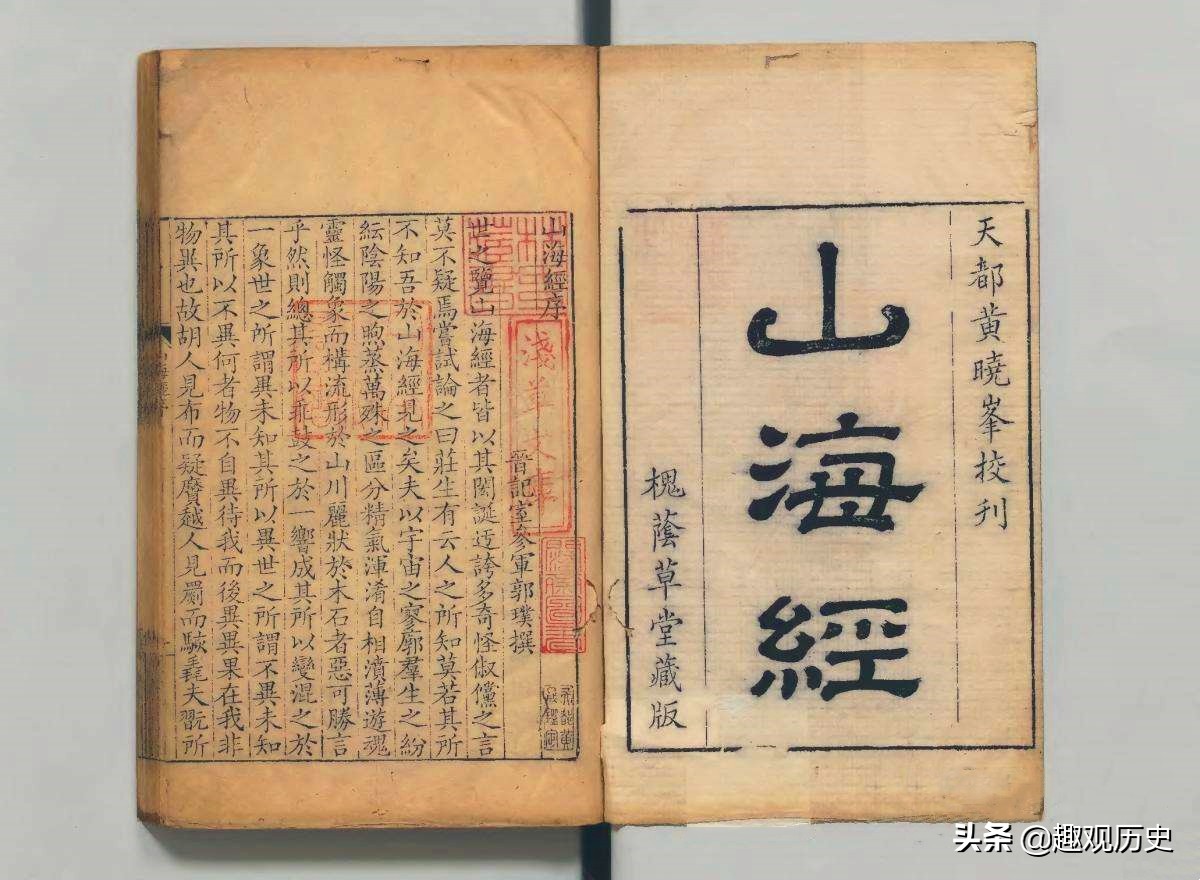 天都黄曉峯挍刋
山海經
槐蔭草堂藏版
山海經序
晉記室參軍郭璞撰
世之覽山海經者皆以其閎誕迂誇多奇怪俶儻之言
莫不疑焉嘗試論之曰莊生有云人之所知莫若其所
不知吾於山海經見之矣夫以宇宙之寥廓羣生之紛
紜陰陽之煦蒸萬殊之區分精氣渾淆自相濆薄遊魂
靈怪觸象而構流形於山川麗狀於木石者惡可勝言
乎然則總其所以乖鼓之於一響成其所以變混之於
一象世之所謂異未知其所以異世之所謂不異未知
其所以不異何者物不自異待我而後異異果在我非
物異也故胡人見布而疑黂越人見罽而駭毳夫翫所
淺草文庫
头条 @趣观历史